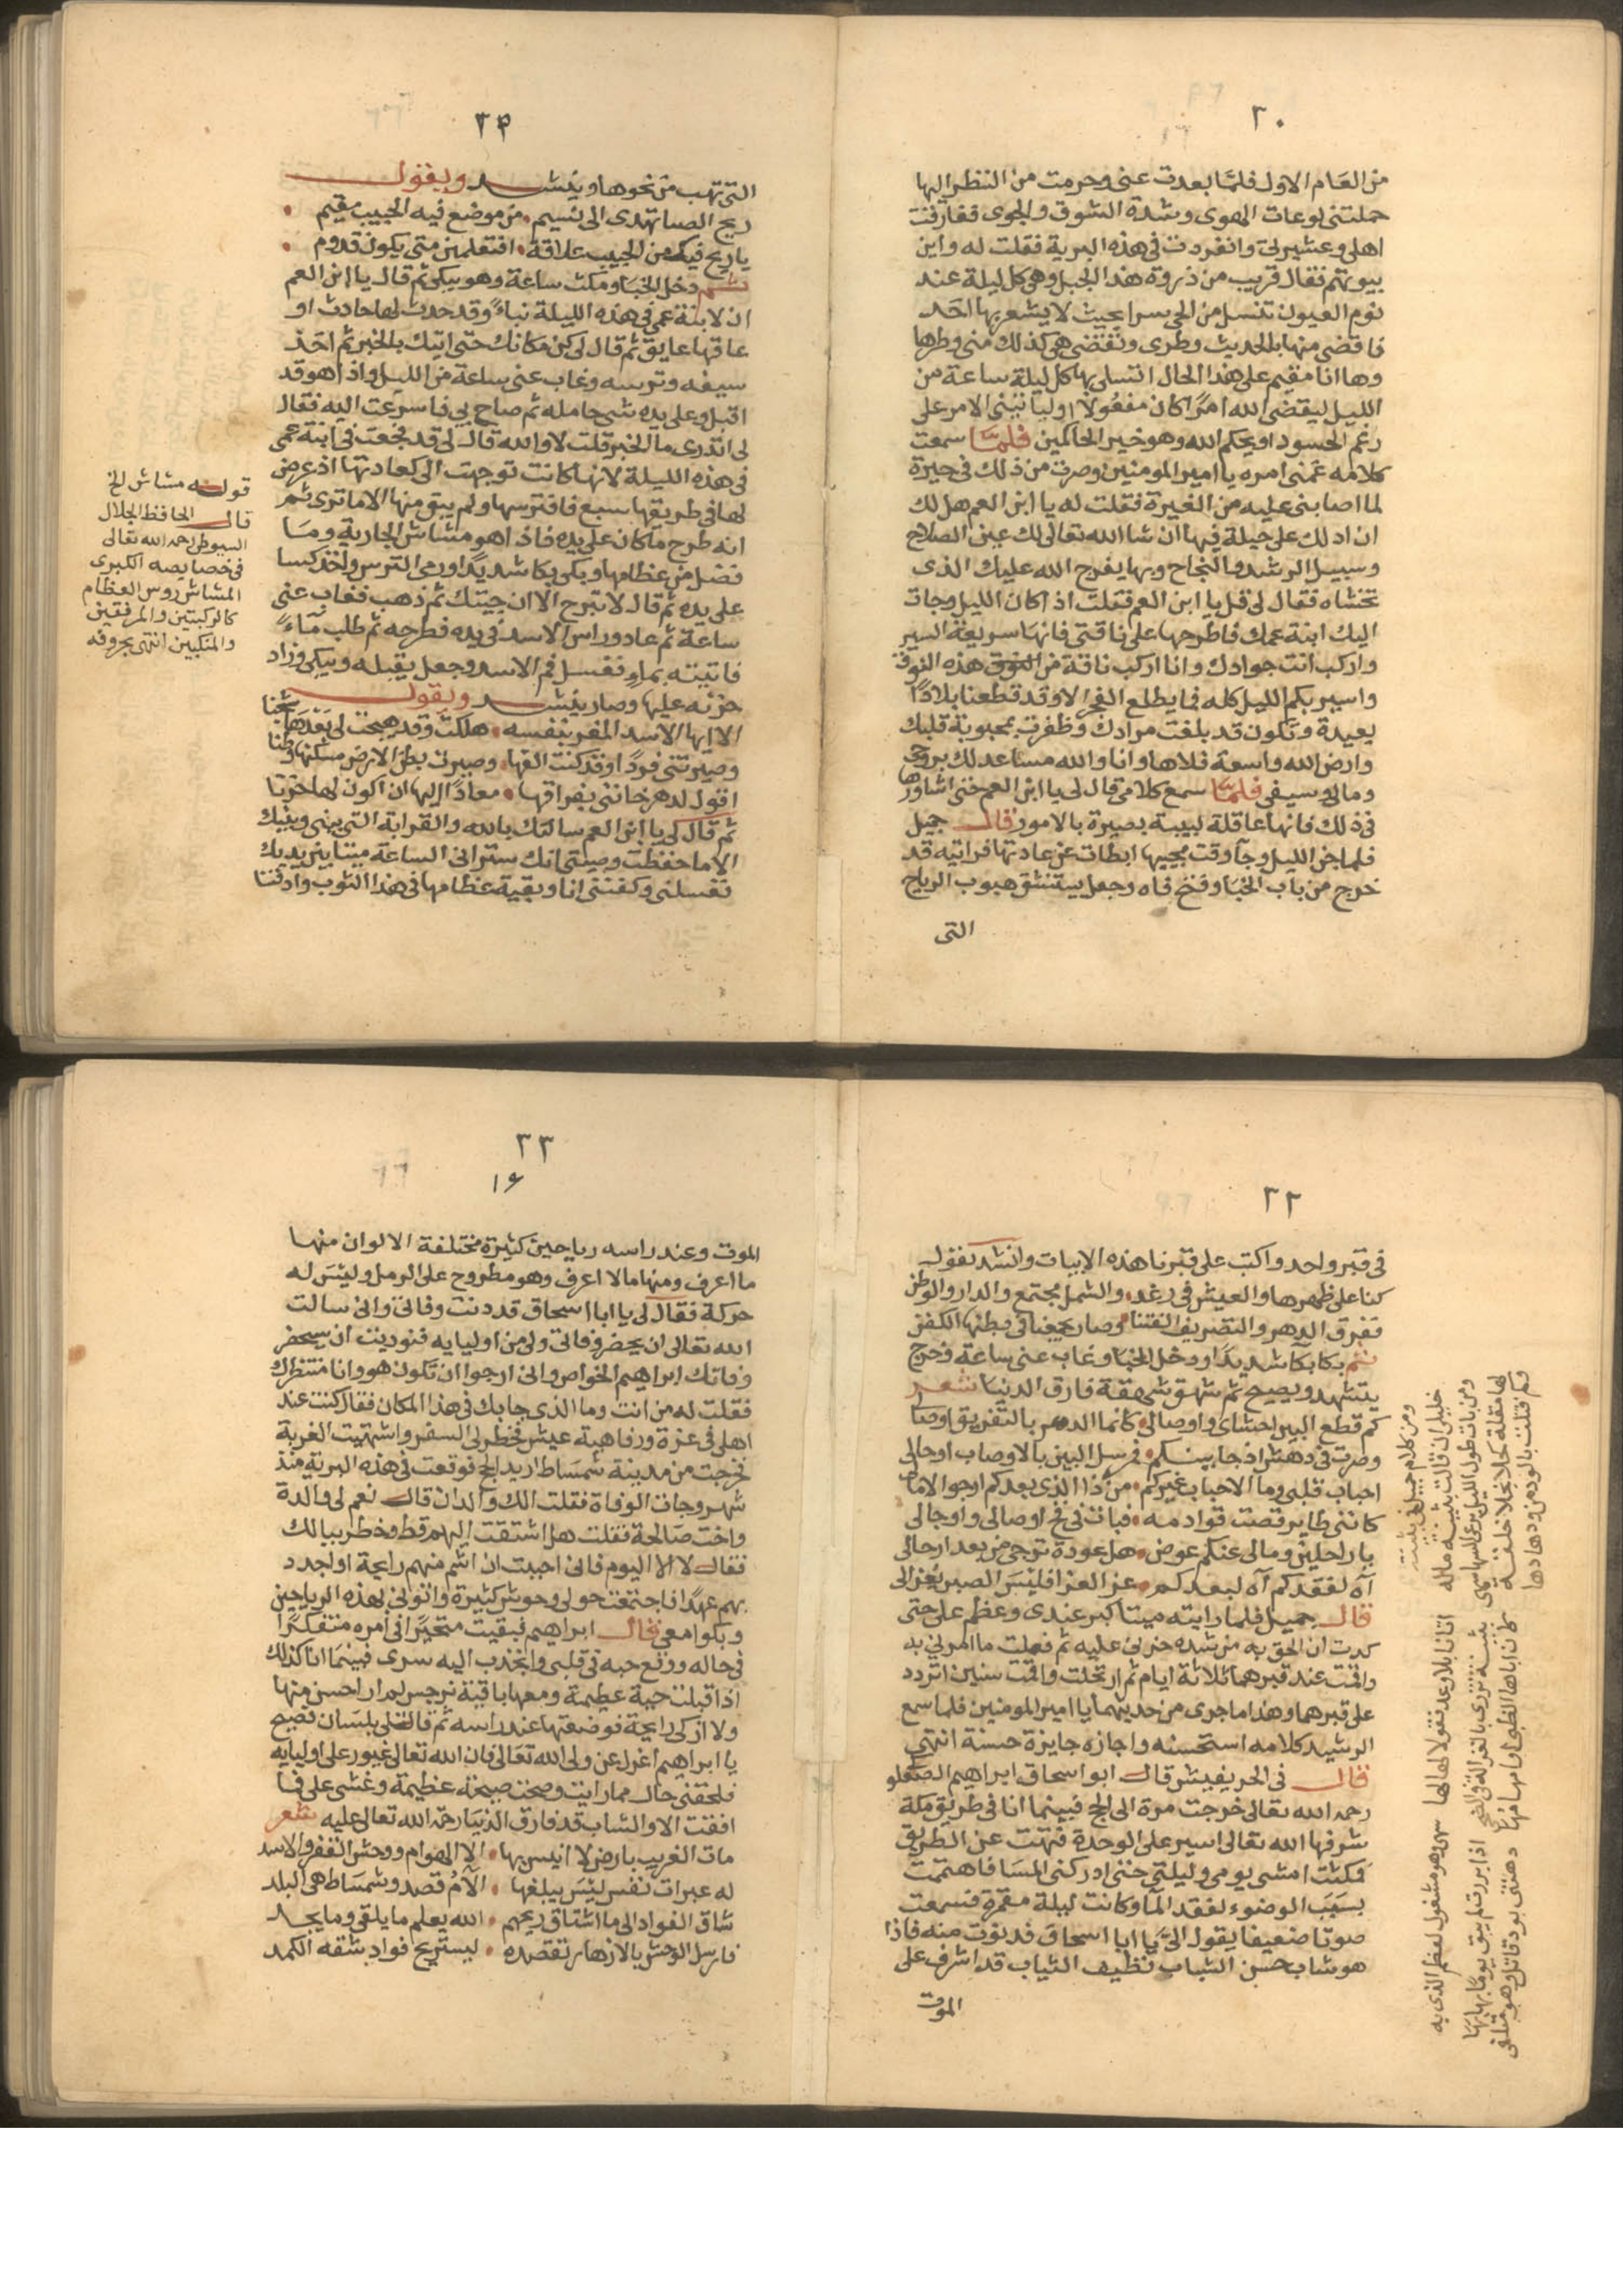 ٢٠
من العام الاول فلما بعدت عنى وحرمت من النظر اليها
حملتنى لوعات الهوى وشدة الشوق والجوى ففارقت
اهلى وعشيرتى وانفردت فى هذه البرية فقلت له واين
بيوتهم فقال قريب من ذروة هذا الجبل وهى كل ليلة عند
نوم العيون تنسل من الحى سرا بحيث لا يشعر بها احد
فاقضى منها بالحديث وطرى وتقتضى هى كذلك منى وطرها
وها انا مقيم على هذا الحال اتسلى بها كل ليلة ساعة من
الليل ليقضى الله امرًا كان مفعولا او ياتينى الامر على
رغم الحسود او يحكم الله وهو خير الحاكمين فلما سمعت
كلامه غمنى امره يا امير المومنين وصرت من ذلك فى حيرة
لما اصابنى عليه من الغيرة فقلت له يا ابن العم هل لك
ان ادلك على حيلة فيها ان شا الله تعالى لك عين الصلاح
وسبيل الرشد والنجاح وبها يفرج الله عليك الذى
تخشاه فقال لى قل يا ابن العم فقلت اذا كان الليل وجات
اليك ابنة عمك فاطرحها على ناقتى فانها سريعة السير
واركب انت جوادك وانا اركب ناقة من النوق هذه النوق
واسير بكم الليل كله فما يطلع الفجر الا وقد قطعنا بلادًا
بعيدة وتكون قد بلغت مرادك وظفرت بمحبوبة قلبك
وارض الله واسعة فلاها وانا والله مساعد لك بروحى
ومالى وسيفى فلما سمع كلامى قال لى يا ابن العم حتى اشاورها
فى ذلك فانها عاقلة لبيبة بصيرة بالامور قال جميل
فلما جن الليل وجآ وقت مجيها ابطات عن عادتها فرايته قد
خرج من باب الخبا وفتح فاه وجعل يستنشق هبوب الرياح
التى
٣٢
التى تهب من نحوها وينشد ويقول
ريح الصبا تهدى الى نسيم • من موضع فيه الحبيب مقيم •
يا ريح فيك من الحبيب علاقة • افتعلمين متى يكون قدوم •
ثم دخل الخبا ومكث ساعة وهو يبكى ثم قال يا ابن العم
ان لابنة عمى فى هذه الليلة نباءً وقد حدث لها حادث او
عاقها عايق ثم قال لى كن مكانك حتى اتيك بالخبر ثم اخذ
سيفه وترسه وغاب عنى ساعة من الليل واذا هو قد
اقبل وعلى يده شى حامله ثم صاح بى فاسرعت اليه فقال
لى اتدرى ما الخبر قلت لا والله قال لى قد فجعت فى ابنة عمى
فى هذه الليلة لانها كانت توجهت الى كعادتها اذ عرض
لها فى طريقها سبع فافترسها ولم يبق منها الا ما ترى ثم
انه طرح ما كان على يده فاذا هو مشاش الجارية وما
فضل من عظامها وبكى بكا شديدًا ورمى الترس واخذ كسا
على يده ثم قال لا تبرح الا ان جيتك ثم ذهب فغاب عنى
ساعة ثم عاد وراس الاسد فى يده فطرحه ثم طلب مآءً
فاتيته بماء فغسل فم الاسد وجعل يقبله ويبكى وزاد
حزنه عليها وصار ينشد ويقول
الا ايها الاسد المغر بنفسه • هلكت وقد هيجت لى بعدها شجنا
وصيرتنى فردًا وقد كنت الفها • وصيرت بطن الارض مسكنها وطنا
اقول لدهر خاننى بفراقها • معاذًا الها ان اكون لها حزنا
ثم قال لى يا ابن العم سالتك بالله والقرابة التى بينى وبينك
الا ما حفظت وصيتى انك سترانى الساعة ميتا بين يديك
تغسلنى وكفننى انا وبقية عظامها فى هذا الثوب وادفنا
قوله مشاش الخ
قال الحافظ الجلال
السيوطى رحمه الله تعالى
فى خصايصه الكبرى
المشاش روس العظام
كالركبتين والمرفقين
والمنكبين انتهى بحروفه
٢٢
فى قبر واحد واكتب على قبرنا هذه الابيات وانشد يقول
كنا على ظهرها والعيش فى رغد • والشمل مجتمع والدار والوطن
ففرق الدهر والتصريف الفتنا • وصار يجمعنا فى بطنها الكفن
ثم بكا بكآ شديدًا ودخل الخبا وغاب عنى ساعة وخرج
يتنهد ويصيح ثم شهق شهقة فارق الدنيا شعر
كم قطع البين احشاى واوصالى • كانما الدهر بالتفريق اوصا
وصرت فى دهش اذ جا بينكم • فى سيل البين بالاوصاب اوحالى
احباب قلبى وما الاحباب غيركم • من ذا الذى بعدكم ارجو لامالى
كاننى طاير قصت قوادمه • فبات فى فخ اوصالى واوجالى
يا راحلين ومالى عنكم عوض • هل عودة ترجى من بعد ارحالى
آه لفقدكم آه لبعدكم • عز العزا فليس الصبر يعزى لى
قال جميل فلما رايته ميتا كبر عندى وعظم على حتى
كدت ان الحق به من شده حزنى عليه ثم فعلت ما امرنى به
واقمت عند قبرهما ثلاثة ايام ثم ارتحلت واقمت سنين اتردد
على قبرهما وهذا ما جرى من حديثهما يا امير المومنين فلما سمع
الرشيد كلامه استحسنه واجازه جايزة حسنة انتهى
قال فى الحريفيش قال ابو اسحاق ابراهيم الصعلو
رحمه الله تعالى خرجت مرة الى الحج فبينما انا فى طريق مكة
شرفها الله تعالى اسير على الوحدة فتهت عن الطريق
فمكثت امشى يومى وليلتى حتى ادركنى المسا فاهتممت
بسبب الوضوء لفقد المآ وكانت ليلة مقمرة فسمعت
صوتا ضعيفا يقول الىّ يا ابا اسحاق فدنوت منه فاذا
هو شاب حسن الشباب نظيف الثياب قد اشرف على
الموت
ومن كلام جميل فى بثينة
٢٣
١٩
الموت وعند راسه رياحين كثيرة مختلفة الالوان منها
ما اعرف ومنها ما لا اعرف وهو مطروح على الرمل وليس له
حركة فقال لى يا ابا اسحاق قد دنت وفاتى وانى سالت
الله تعالى ان يحضر وفاتى ولى من اوليايه فنوديت ان سيحضر
وفاتك ابراهيم الخواص وانى ارجوا ان تكون هو وانا منتظرك
فقلت له من انت وما الذى جا بك فى هذا المكان فقال كنت عند
اهلى فى عزة ورفاهية عيش فخطر لى السفر واشتهيت الغربة
فخرجت من مدينة شمساط اريد الحج فوقعت فى هذه البرية منذ
شهر وجات الوفاة فقلت الك والدان قال نعم لى والدة
واخت صالحة فقلت هل اشتقت اليهم قط وخطر ببالك
فقال لا الا اليوم فانى احببت ان اشم منهم رايحة او اجدد
بهم عهدًا فاجتمعت حولى وحوش كثيرة واتونى بهذه الرياحين
وبكوا معى قال ابراهيم فبقيت متحيرًا فى امره متفكرًا
فى حاله ووقع حبه فى قلبى وانجذب اليه سرى فبينما انا كذلك
اذ اقبلت حية عظيمة ومعها باقة نرجس لم ار احسن منها
ولا ازكى رايحة فوضعتها عند راسه ثم قالت لى بلسان فصيح
يا ابراهيم اغرل عن ولى الله تعالى فان الله تعالى غيور على اوليايه
فلحقنى حال مما رايت وصحت صيحة عظيمة وغشى على فما
افقت الا والشاب قد فارق الدنيا رحمة الله تعالى عليه شعر
مات الغريب بارض لا انيس بها • الا الهوام ووحش القفر والاسد
له عبرات نفس ليس يبلغها • الآمُ قصد وشمساط هى البلد
شاق الفواد الى ما اشتاق ريحهم • الله يعلم ما يلقى وما يجد
فارسل الوحش بالازهار تقصده • ليستريح فواد شقه الكمد